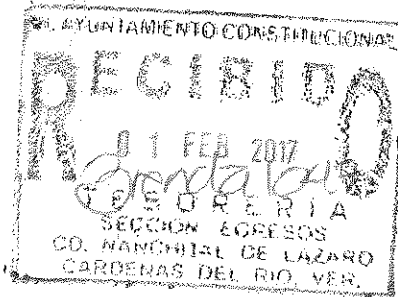 H. AYUNTAMIENTO CONSTITUCIONAL
RECIBIDO
01 FEB 2017
TESORERIA
SECCION EGRESOS
CD. NANCHITAL DE LAZARO
CARDENAS DEL RIO, VER.